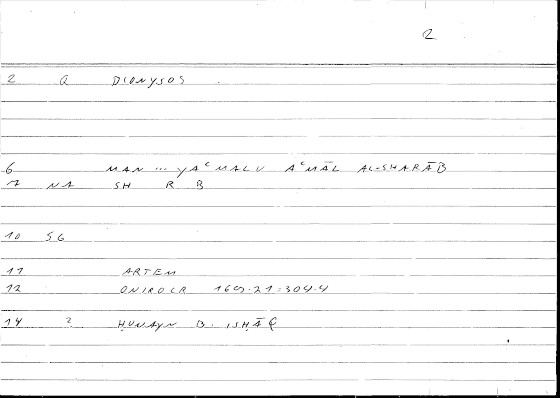 2
2 Q DIONYSOS
6 MAN ... YAʿMALU AʿMĀL AL-SHARĀB
7 NA SH R B
10 SG
11 ARTEM
12 ONIROCR 169.21=304.4
14 2 ḤUNAYN B. ISḤĀQ